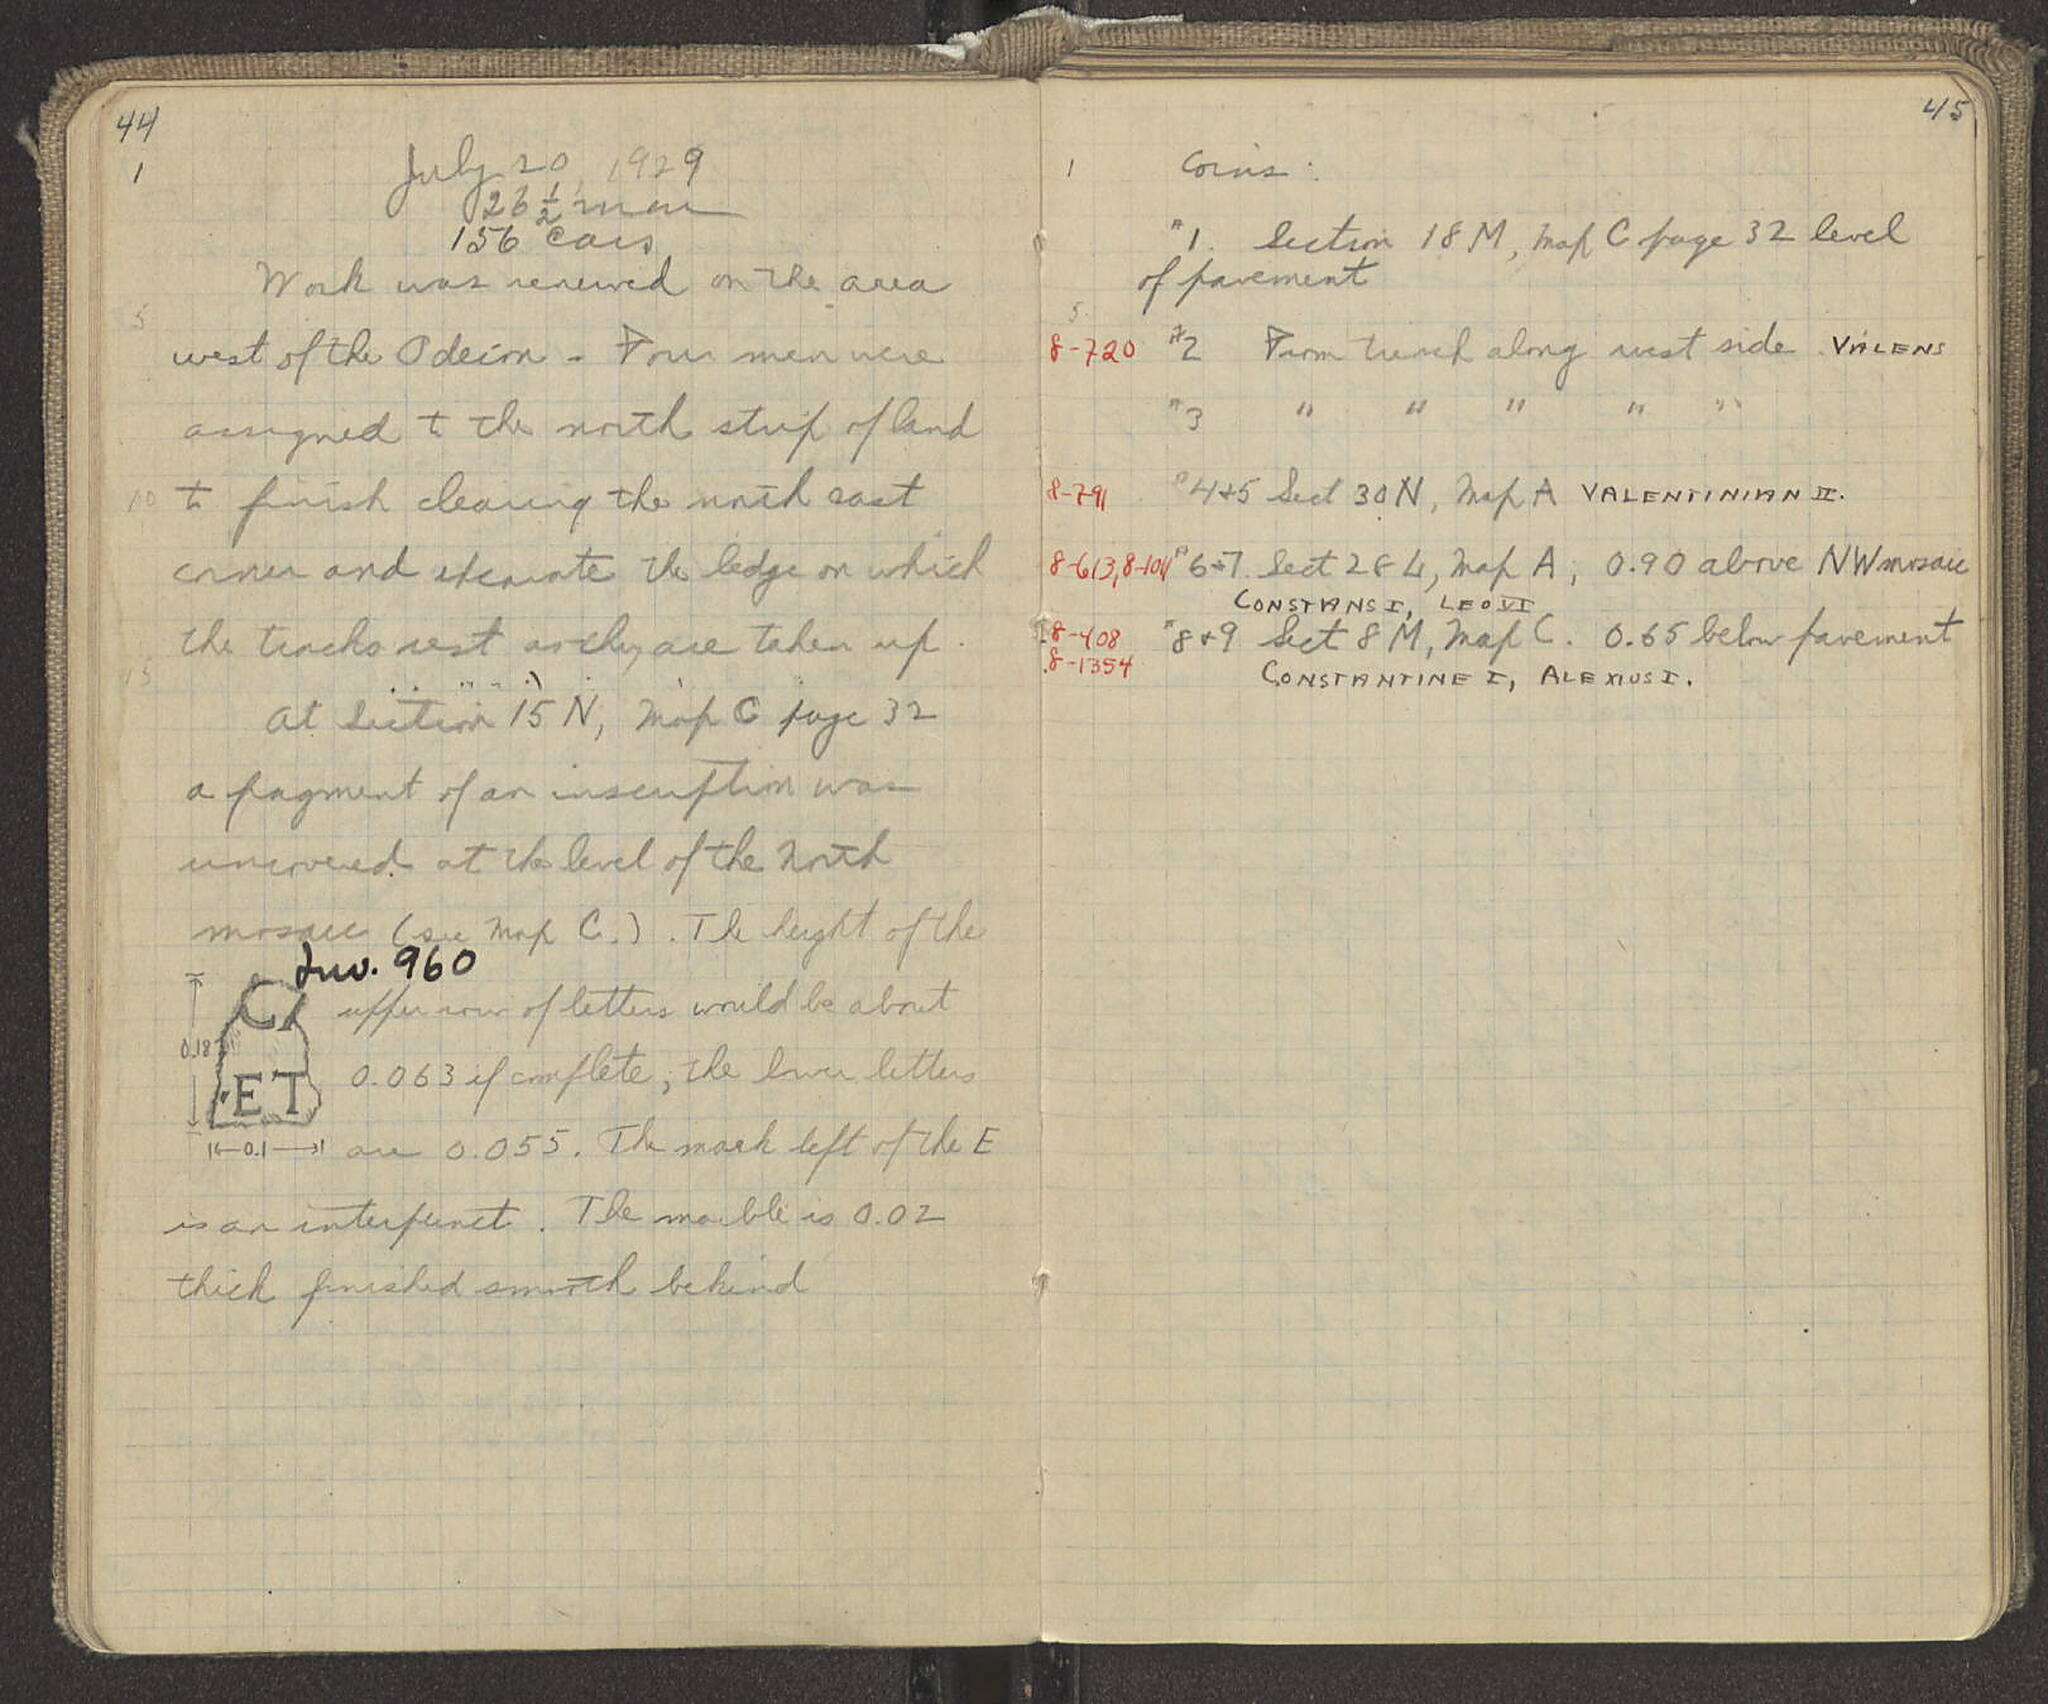 44
1
July 20 1929
26 1/2 men
156 cars
Work was renewed on the area
5
west of the Odeion - Four men were
assigned to the north strip of land
10 to finish clearing the north east
corner and excavate the ledge on which
the tracks rest as they are taken up.
15
At Section 15 N, Map C page 32
a fragment of an inscription was
uncovered at the level of the North
mosaic (see Map C.). The height of the
Inv. 960
upper row of letters would be about
0.18
0.063 if complete, the lower letters
·ET
0.1 are 0.055. The mark left of the E
is an interpunct. The marble is 0.02
thick finished smooth behind
45
1 Coins:
#1. Section 18 M, Map C page 32 level
of pavement
5
8-720 #2 From trench along west side VALENS
#3 " " " " "
8-791 #4+5 Sect 30 N, Map A VALENTINIAN II.
8-613, #6+7. Sect 28 L, Map A, 0.90 above NW mosaic
CONSTANS I, LEO VI
8-408 #8+9 Sect 8 M, Map C. 0.65 below pavement
8-1354 CONSTANTINE I, ALEXIUS I.